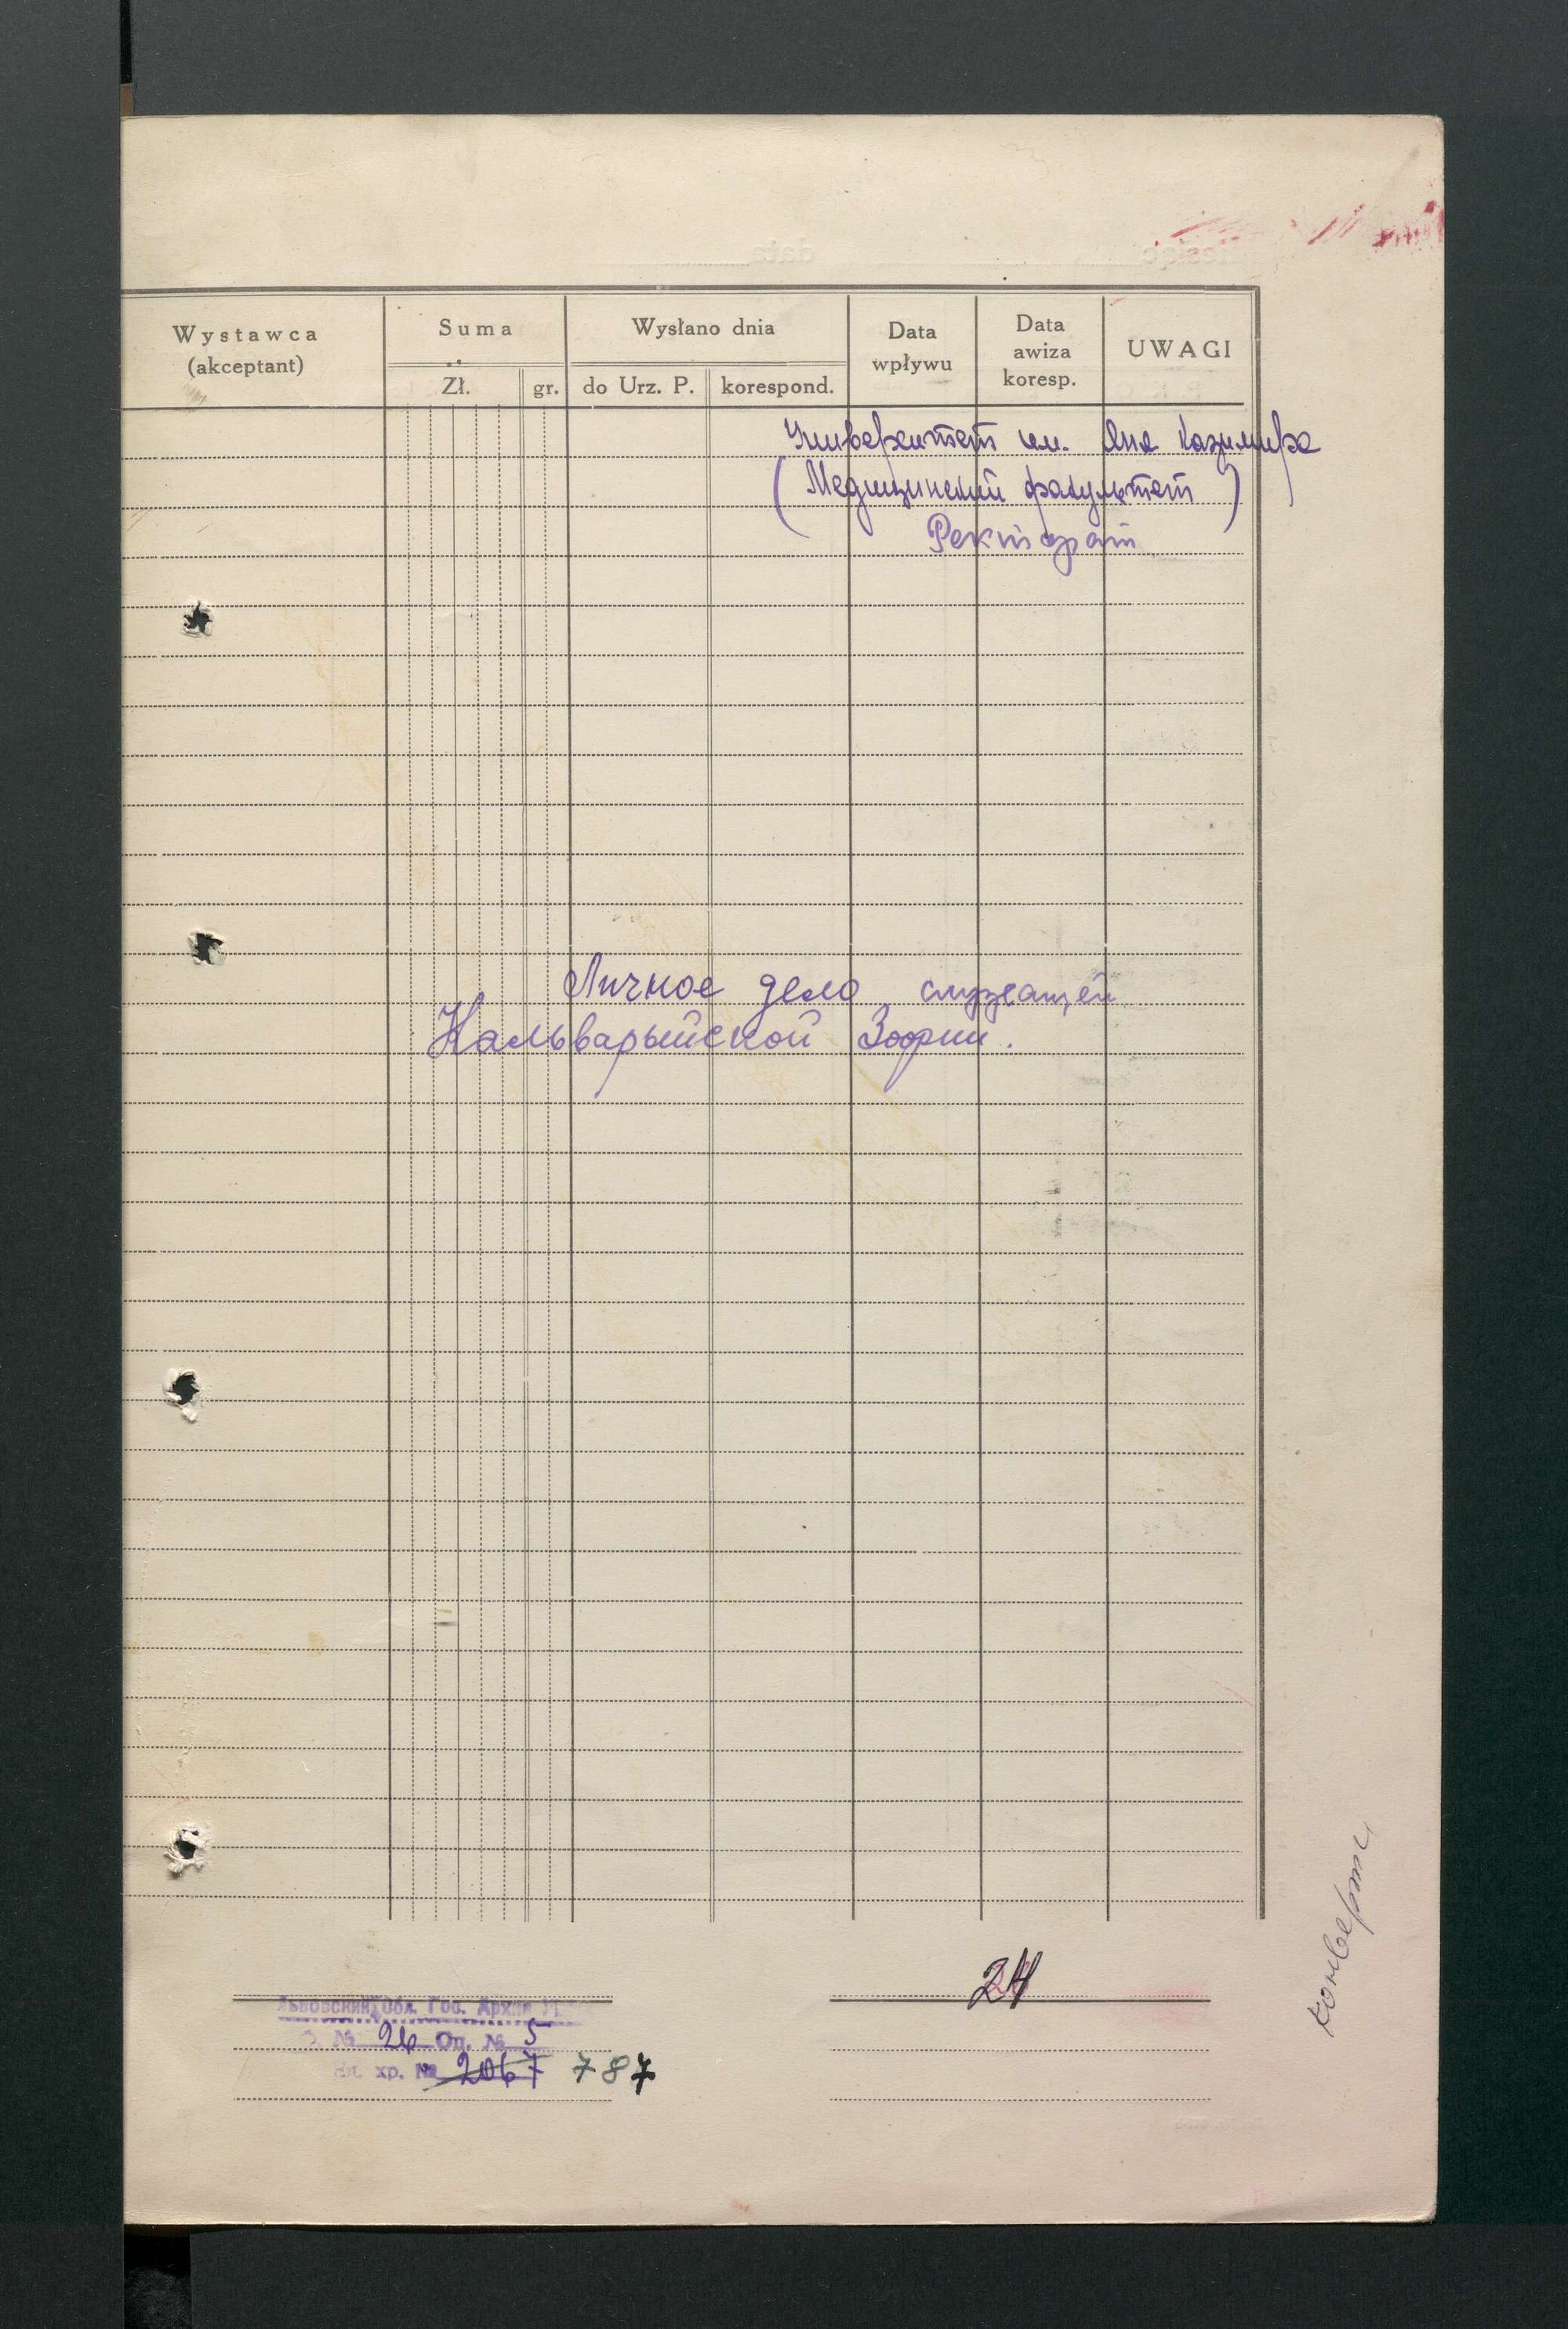 Wystawca
(akceptant)
Suma
Zł. gr.
Wysłano dnia
do Urz. P. korespond.
Data
wpływu
Data
awiza
koresp.
UWAGI
Университет им. Яна Казимира
(Медицинский факультет)
Ректорат
Личное дело служащей
Кальварыйской Зофии.
24
Львовский Обл. Гос. Архив
№ 26 Оп. № 5
хр. № 2067 787